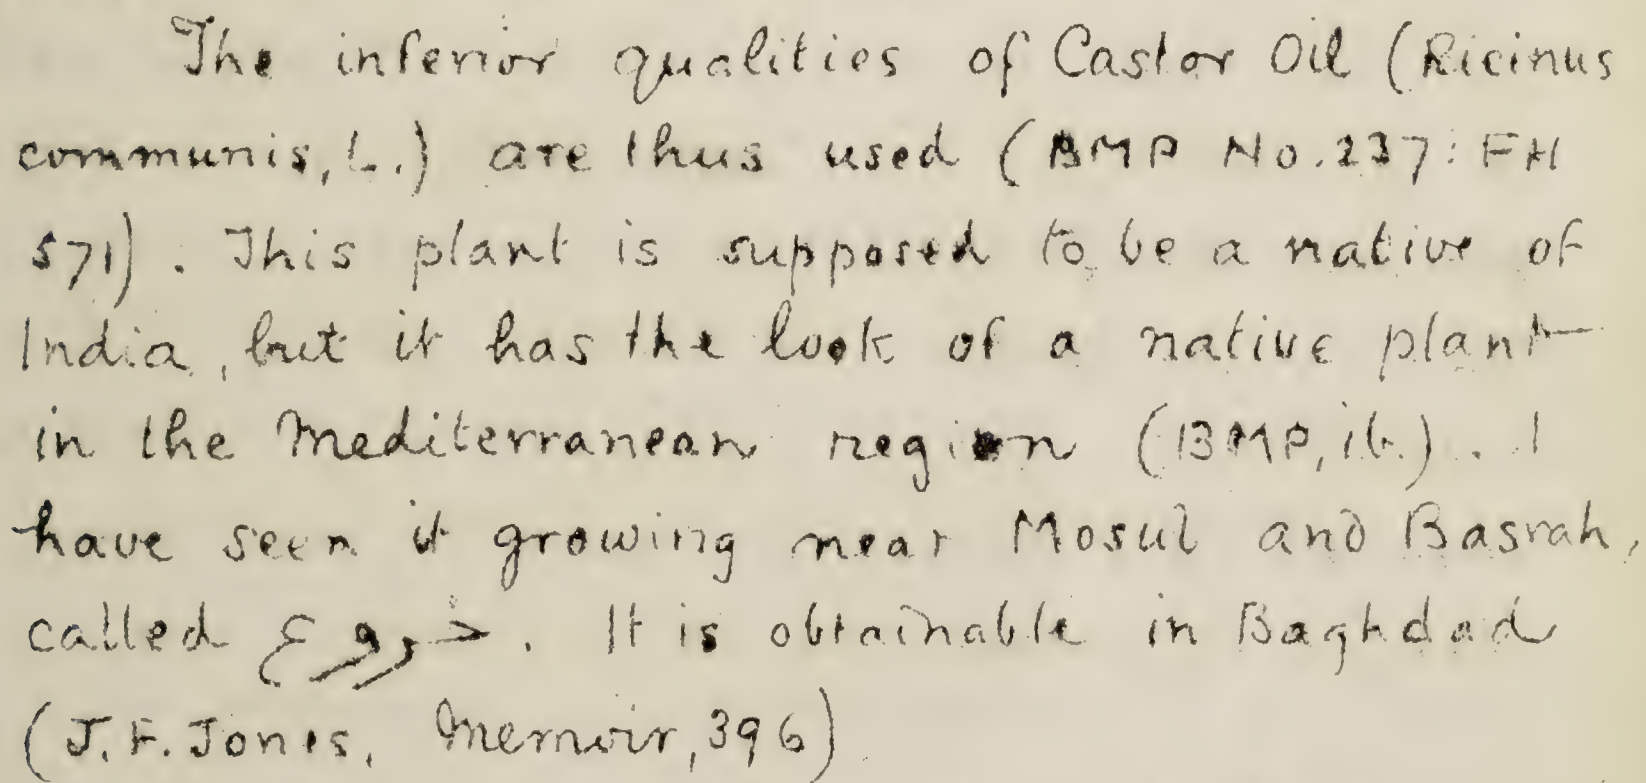 The inferior qualities of Castor Oil (Ricinus
communis, L.) are thus used (BMP No. 237: FH
571). This plant is supposed to be a native of
India, but it has the look of a native plant
in the Mediterranean region (BMP, ib.). I
have seen it growing near Mosul and Basrah,
called خروع. It is obtainable in Baghdad
(J. F. Jones, Memoir, 396)